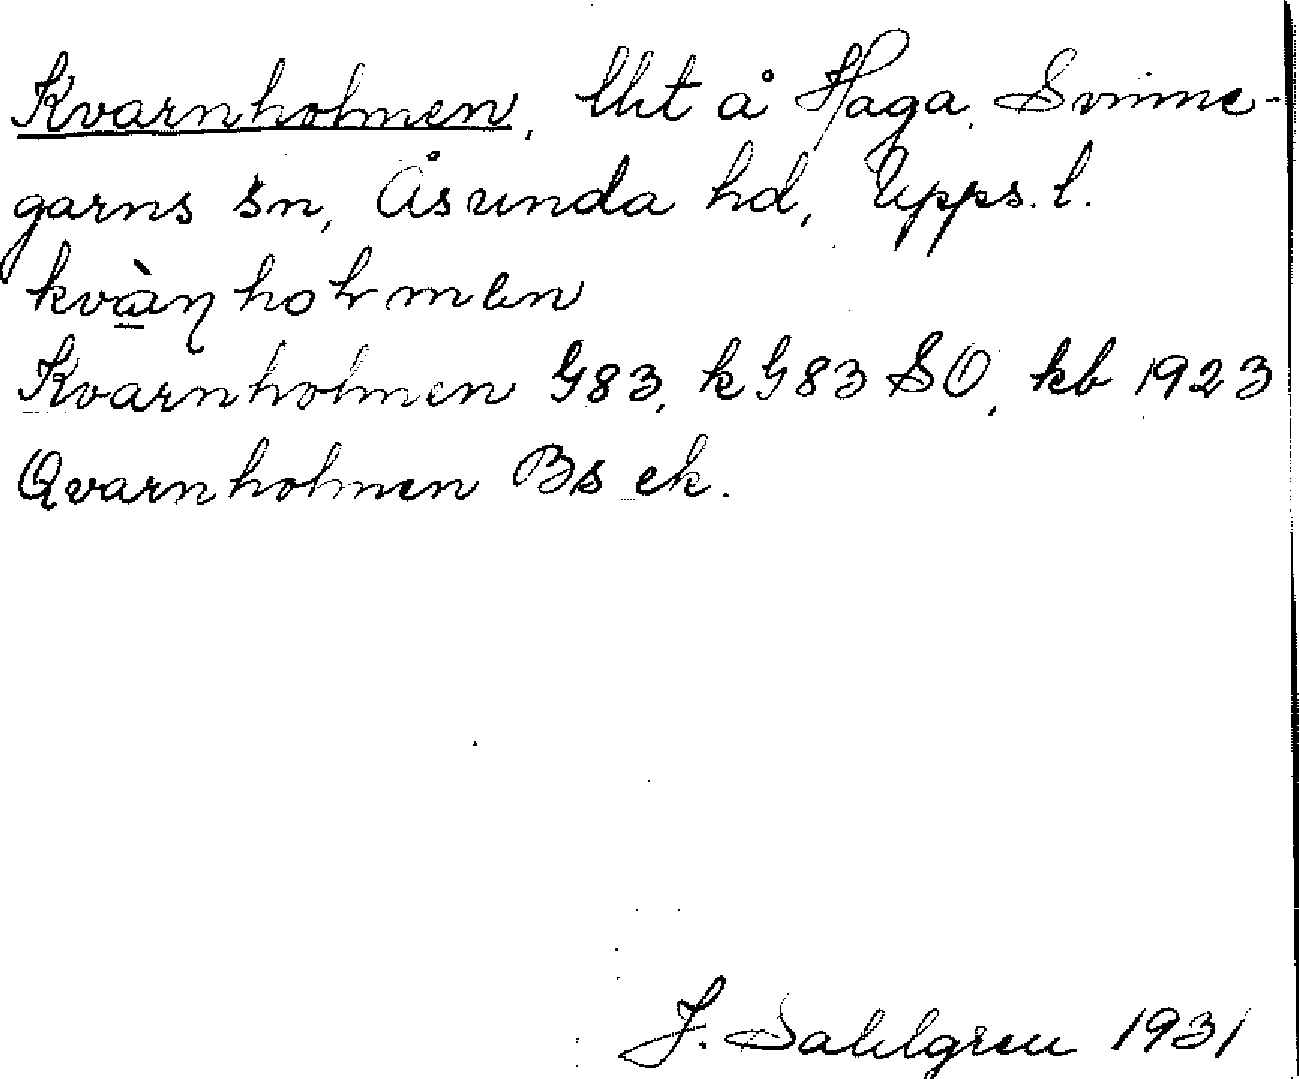 Kvarnholmen, lht å Haga, Svinne-
garns sn, Åsunda hd, Upps. l.
kvàṇholmen
Kvarnholmen G83, kG83 SO, kb 1923
Qvarnholmen Bs ek.
J. Sahlgren 1931